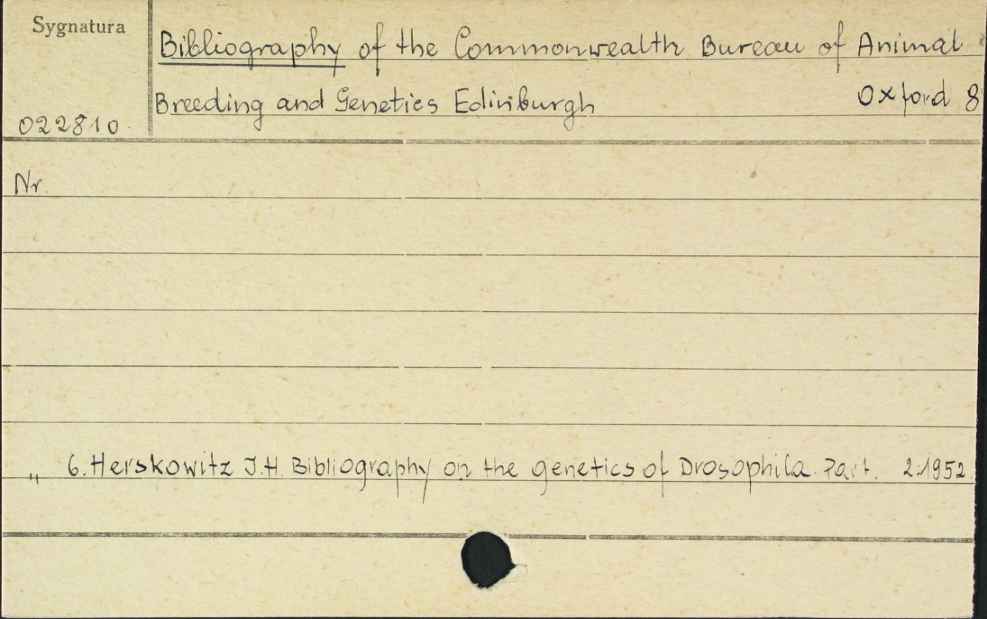 Sygnatura
Bibliography of the Commonwealth Bureau of Animal
Breeding and Genetics Edinburgh Oxford 8
022810
Nr
„ 6. Herskowitz J.H. Bibliography on the genetics of Drosophila. Part. 2.1952